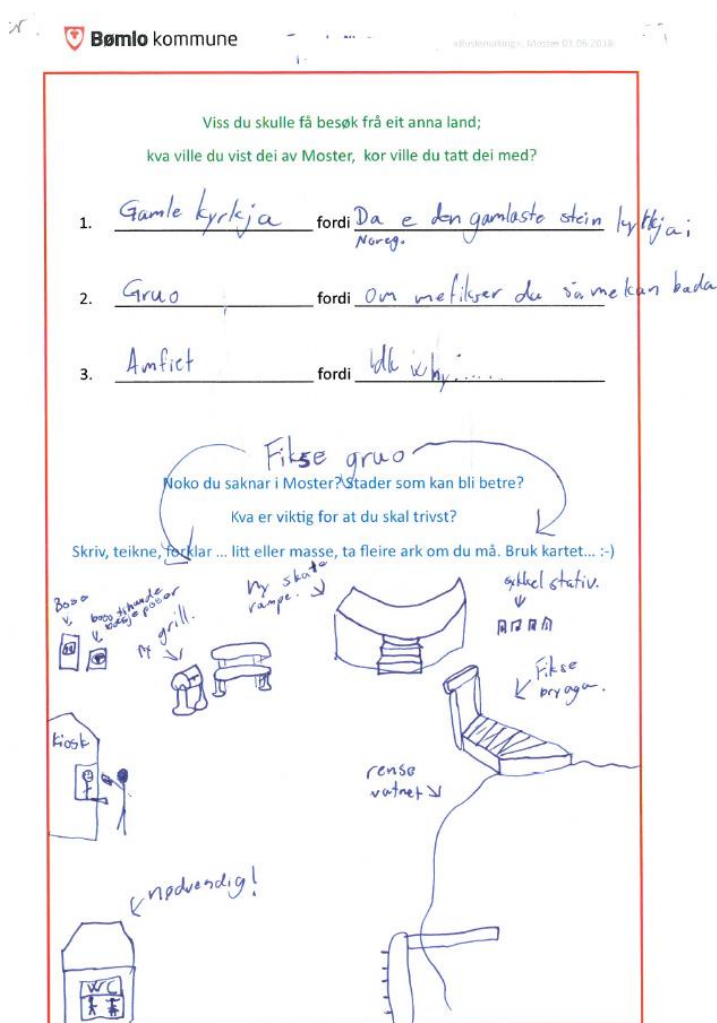 Bømlo kommune
«Buskemaking», Moster 01.06.2018
Viss du skulle få besøk frå eit anna land;
kva ville du vist dei av Moster, kor ville du tatt dei med?
1. Gamle kyrkja fordi Da e den gamlaste stein kyrkja i
Noreg.
2. Gruo fordi Om me fikser du så me kan bada
3. Amfiet fordi Idk why......
Fikse gruo
Noko du saknar i Moster? Stader som kan bli betre?
Kva er viktig for at du skal trivst?
Skriv, teikne, forklar ... litt eller masse, ta fleire ark om du må. Bruk kartet... :-)
Boso
boso til hunde
bæsje poser
ny grill.
ny skate
rampe.
sykkel stativ.
Fikse
bryggo.
Kiosk
rense
vatnet
nødvendig!
WC